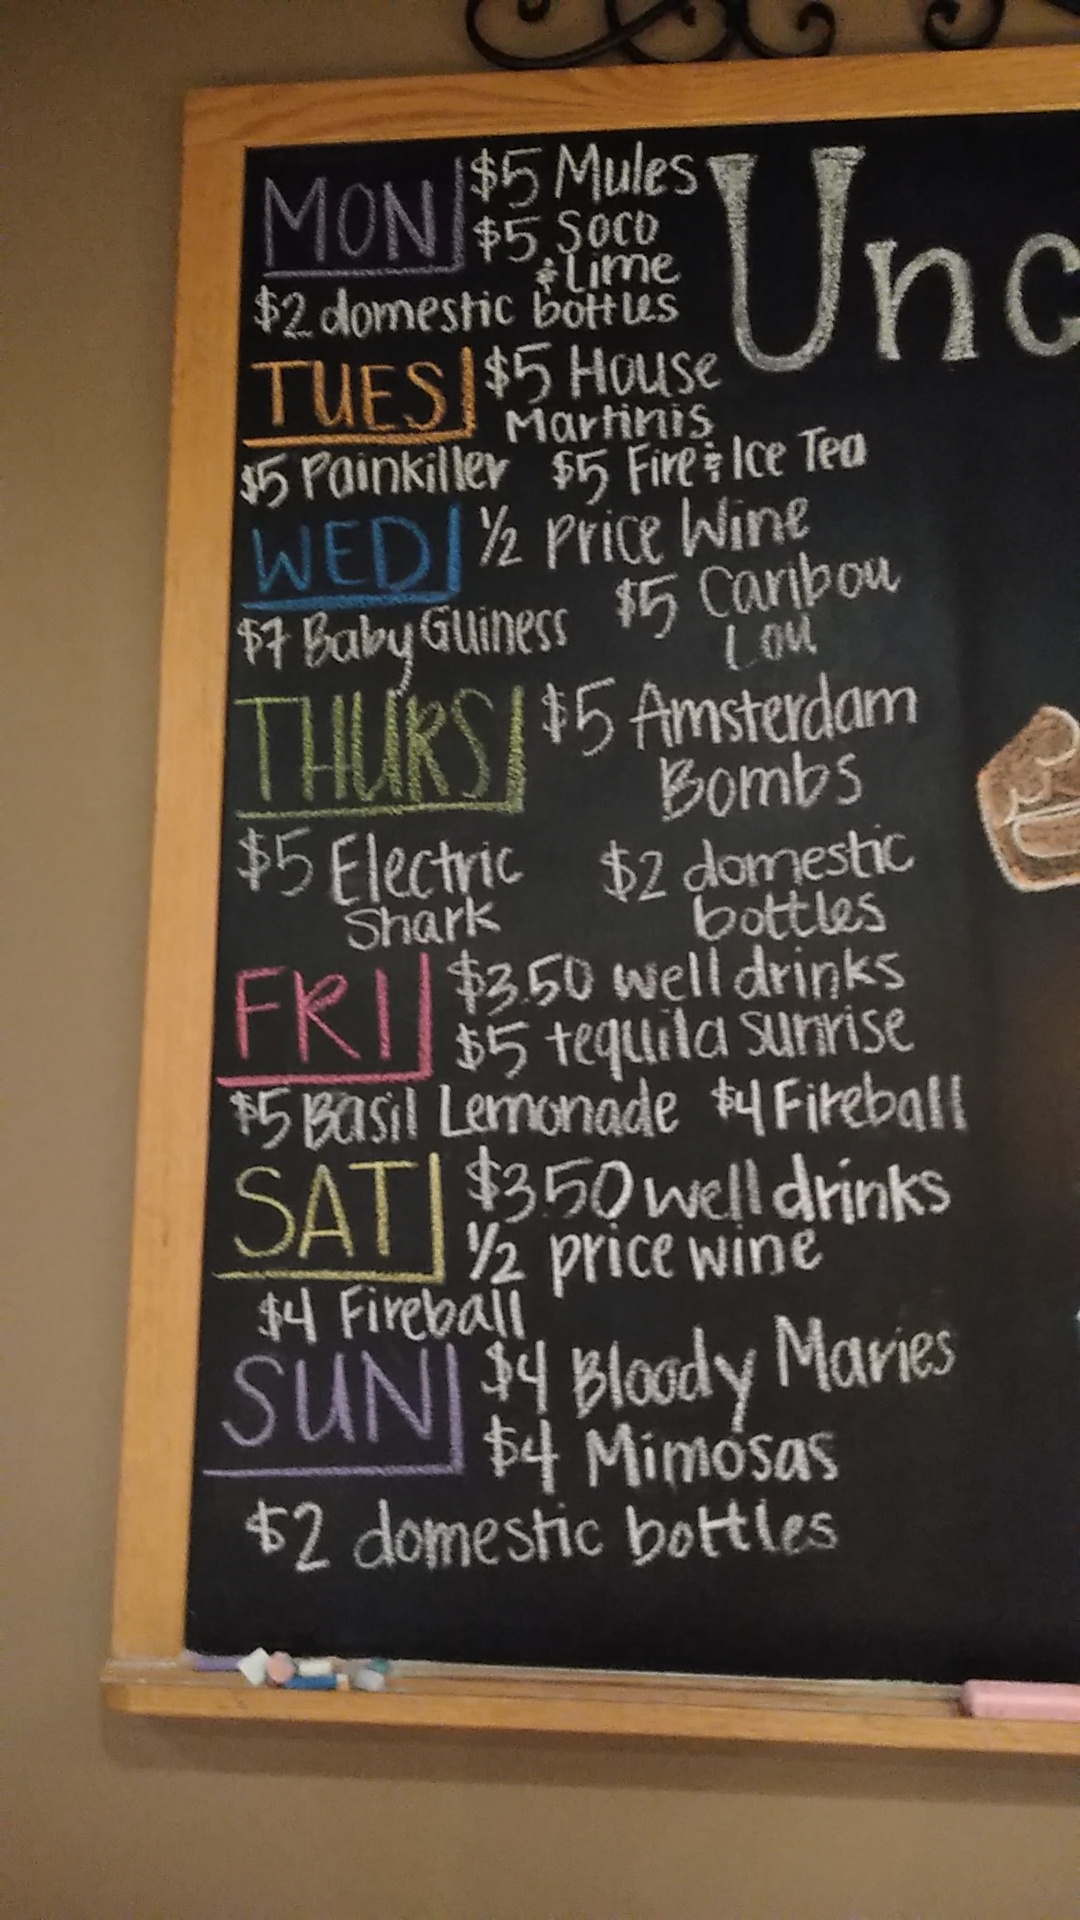 MON $5 Mules
$5 Soco
& Lime
$2 domestic bottles
TUES $5 House
Martinis
$5 Painkiller $5 Fire & Ice Tea
WED ½ price Wine
$5 Caribou
Lou
$7 Baby Guiness
THURS $5 Amsterdam
Bombs
$5 Electric
Shark
$2 domestic
bottles
FRI $3.50 well drinks
$5 tequila sunrise
$5 Basil Lemonade $4 Fireball
SAT $3.50 well drinks
½ price wine
$4 Fireball
SUN $4 Bloody Maries
$4 Mimosas
$2 domestic bottles
Unc